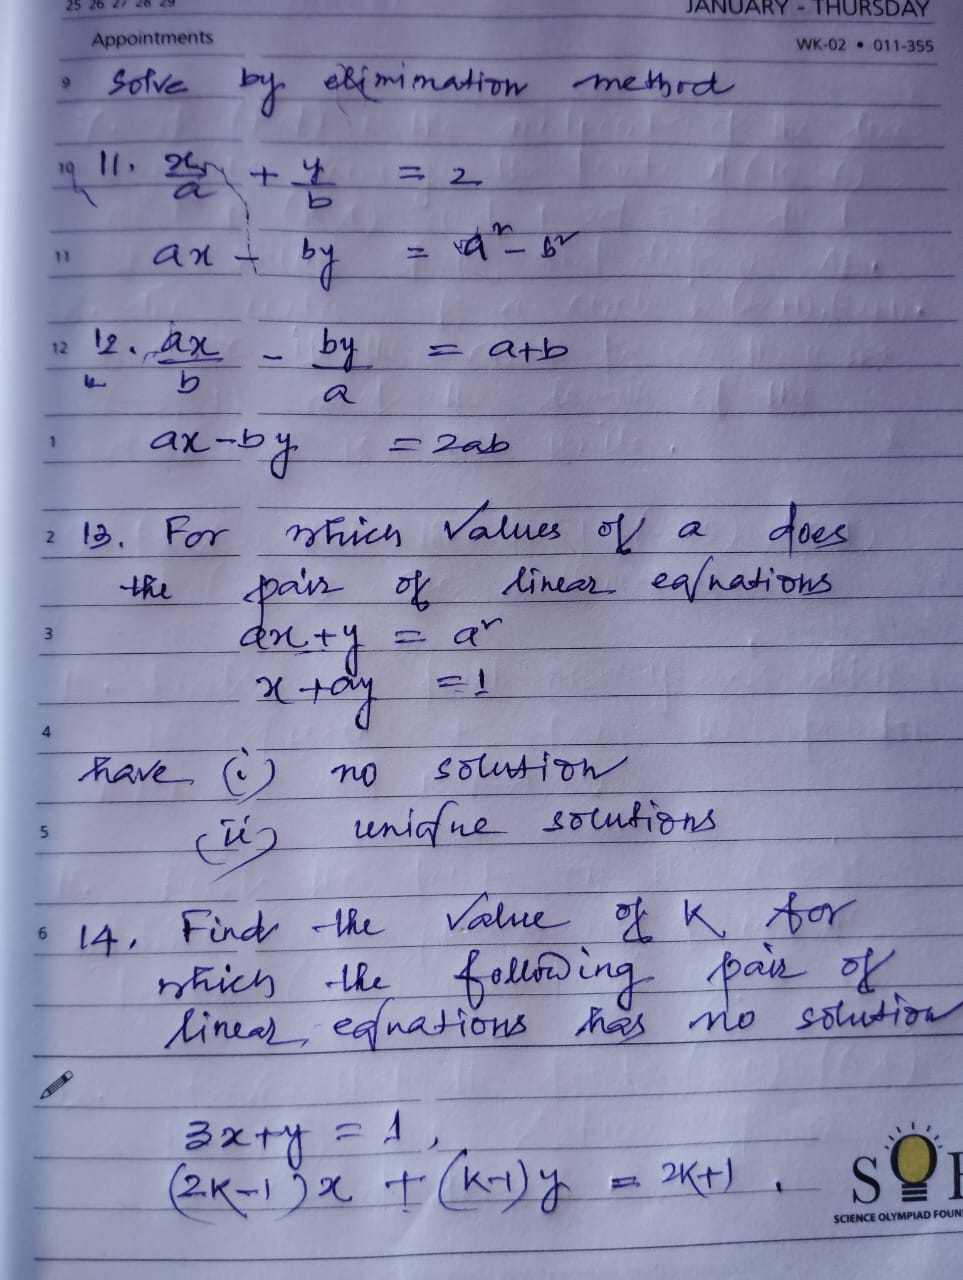 25 26 27 28 29
JANUARY - THURSDAY
Appointments
WK-02 • 011-355
9 Solve by elimination method
10 11. x/a + y/b = 2
11 ax + by = a² - b²
12 12. ax/b - by/a = a+b
1 ax-by = 2ab
2 13. For which values of a does
the pair of linear equations
3 ax+y = a²
x+ay = 1
4
have (i) no solution
5 (ii) unique solutions
6 14. Find the value of K for
which the following pair of
linear equations has no solution
3x+y = 1,
(2K-1)x + (K-1)y = 2K+1.
SCIENCE OLYMPIAD FOUN